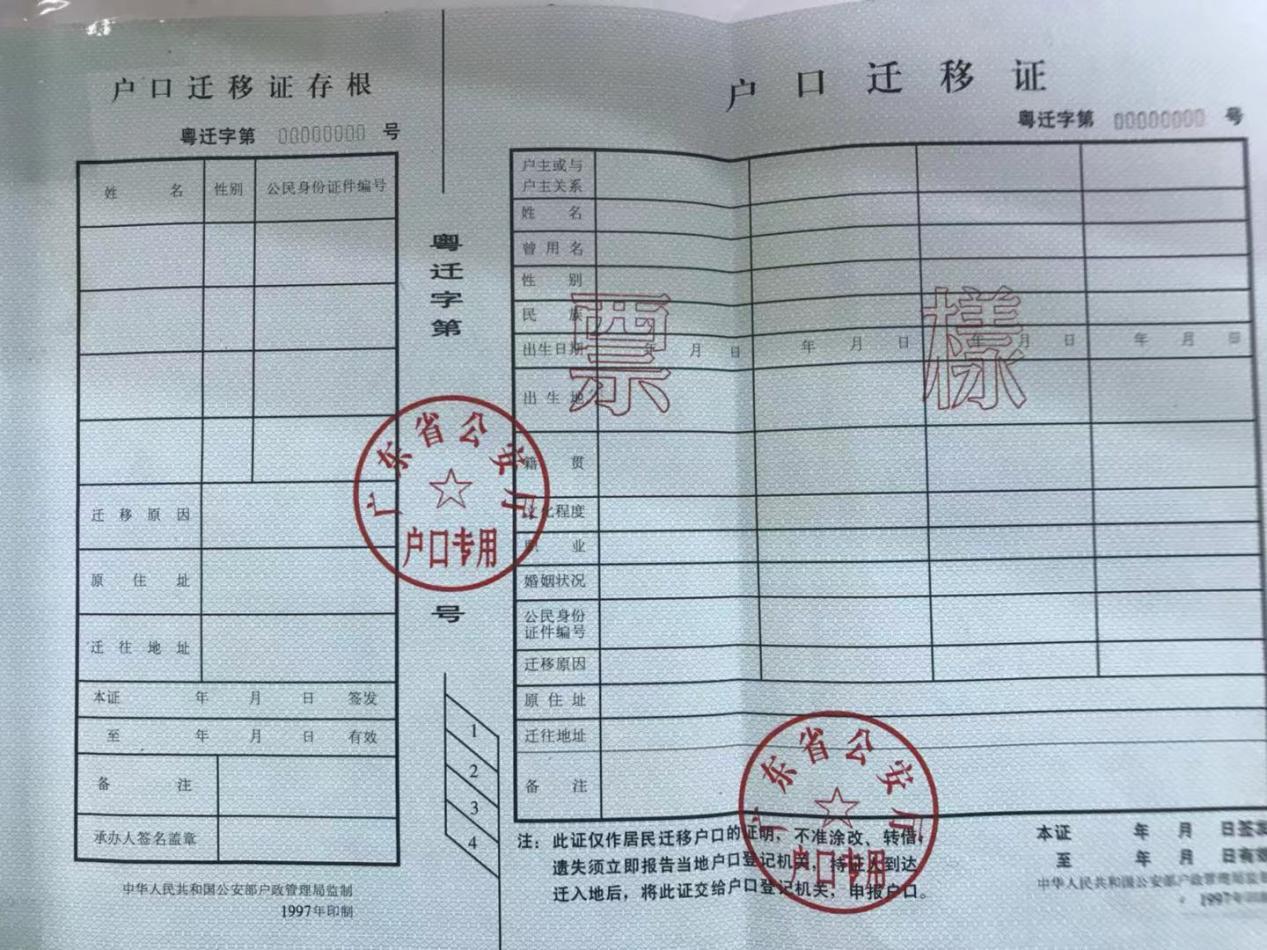 户口迁移证存根
粤迁字第 00000000 号
姓名 性别 公民身份证件编号
迁移原因
原住址
迁往地址
本证 年 月 日 签发
至 年 月 日 有效
备注
承办人签名盖章
中华人民共和国公安部户政管理局监制
1997年印制
粤迁字第
号
广东省公安厅
户口专用
1
2
3
4
户口迁移证
粤迁字第 00000000 号
户主或与
户主关系
姓名
曾用名
性别
民族
出生日期 年 月 日 年 月 日 年 月 日 年 月 日
出生地
籍贯
文化程度
职业
婚姻状况
公民身份
证件编号
迁移原因
原住址
迁往地址
备注
票樣
注：此证仅作居民迁移户口的证明，不准涂改、转借，
遗失须立即报告当地户口登记机关，持证人到达
迁入地后，将此证交给户口登记机关，申报户口。
广东省公安厅
户口专用
本证 年 月 日签发
至 年 月 日有效
中华人民共和国公安部户政管理局监制
1997年印制